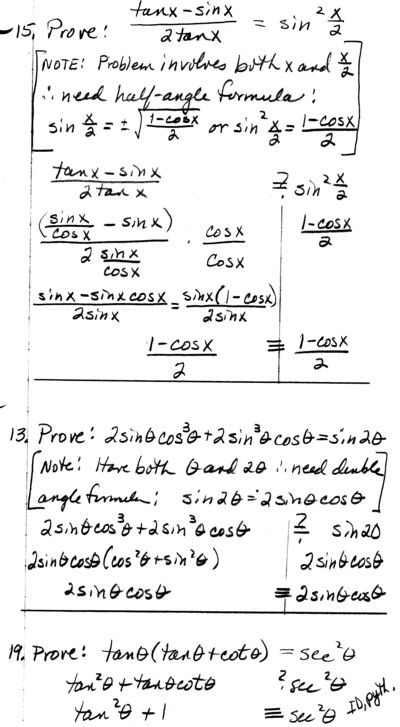 15. Prove: (tanx - sinx)/(2 tanx) = sin² x/2
[NOTE: Problem involves both x and x/2
∴ need half-angle formula:
sin x/2 = ±√((1-cosx)/2) or sin² x/2 = (1-cosx)/2]
(tanx - sinx)/(2 tanx) ?= sin² x/2
((sinx/cosx) - sinx)/(2 sinx/cosx) · cosx/cosx | (1-cosx)/2
(sinx - sinx cosx)/(2 sinx) = (sinx(1-cosx))/(2 sinx)
(1-cosx)/2 ≡ (1-cosx)/2
13. Prove: 2sinθcos³θ + 2sin³θcosθ = sin2θ
[Note: Have both θ and 2θ ∴ need double
angle formula: sin2θ = 2sinθcosθ]
2sinθcos³θ + 2sin³θcosθ ?= sin2θ
2sinθcosθ(cos²θ + sin²θ) | 2sinθcosθ
2sinθcosθ ≡ 2sinθcosθ
19. Prove: tanθ(tanθ + cotθ) = sec²θ
tan²θ + tanθcotθ ? sec²θ
tan²θ + 1 ≡ sec²θ ID, Pyth.